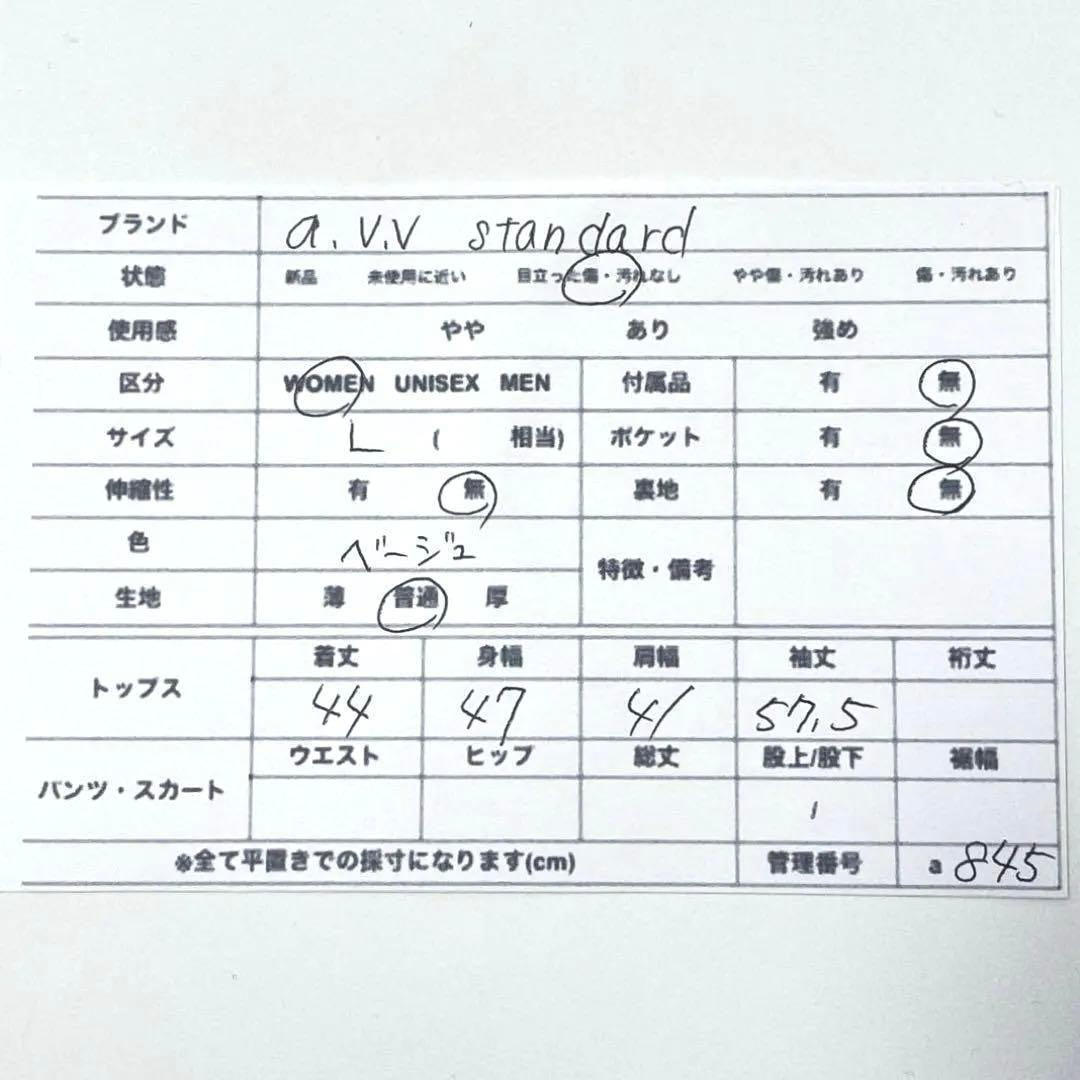 ブランド a.v.v standard
状態 新品 未使用に近い 目立った傷・汚れなし やや傷・汚れあり 傷・汚れあり
使用感 やや あり 強め
区分 WOMEN UNISEX MEN 付属品 有 無
サイズ L ( 相当) ポケット 有 無
伸縮性 有 無 裏地 有 無
色 ベージュ
特徴・備考
生地 薄 普通 厚
着丈 身幅 肩幅 袖丈 裄丈
トップス
44 47 41 57.5
ウエスト ヒップ 総丈 股上/股下 裾幅
パンツ・スカート
/
※全て平置きでの採寸になります(cm) 管理番号 a 845